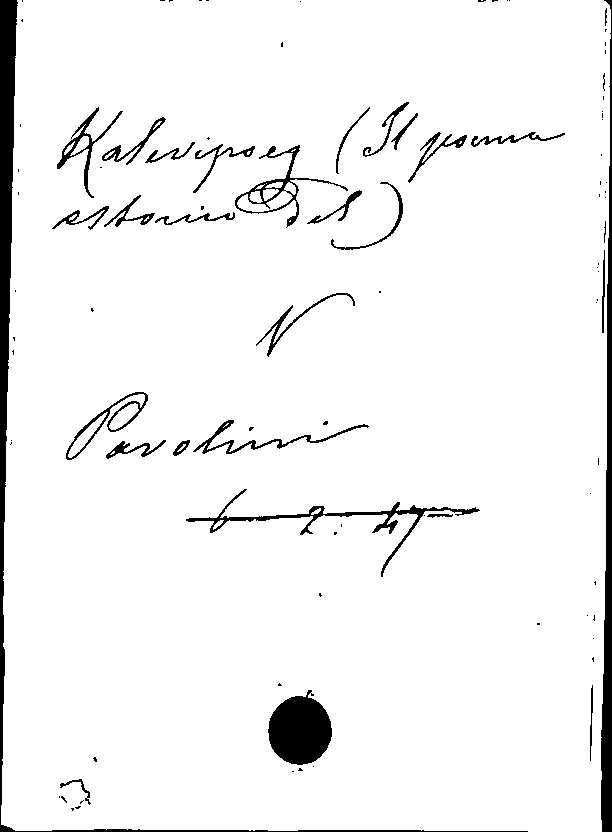 Kalevipoeg (Il poema
estonico del)
V
Pavolini
6 2. 47